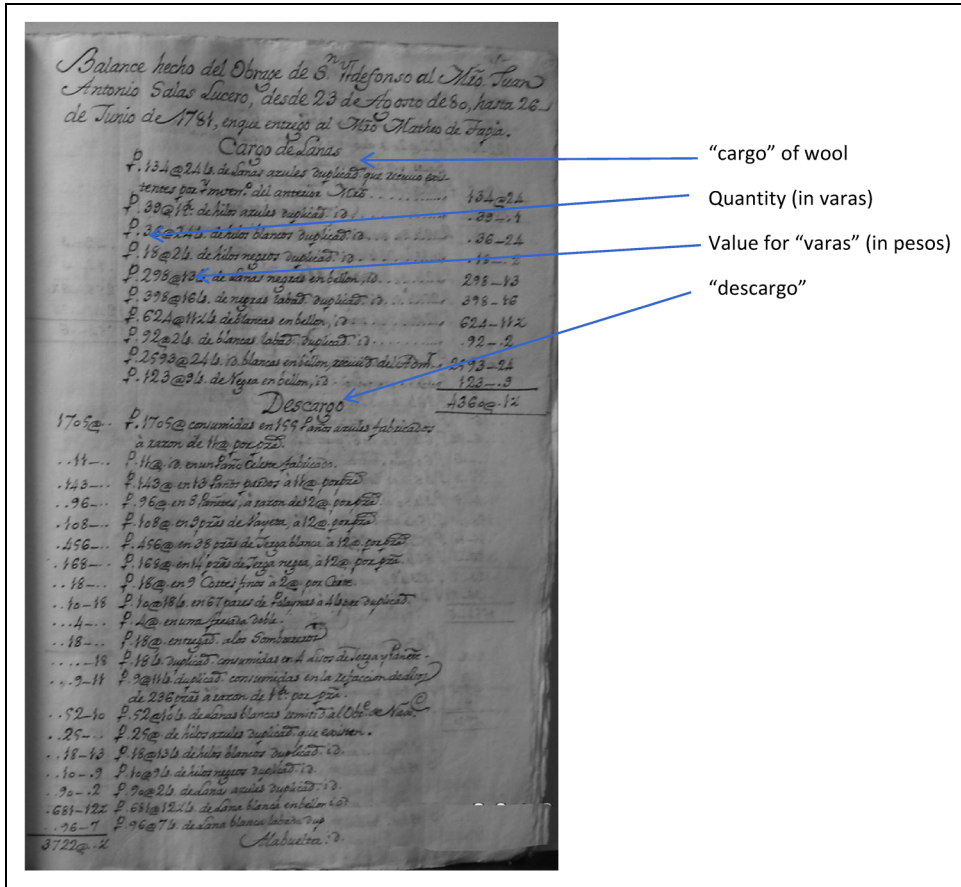 Balance hecho del Obrage de S.n Ildefonso al Mro. Juan
Antonio Salas Lucero, desde 23 de Agosto de 80, hasta 26
de Junio de 1781, en que entregó al Mro Matheo de Tapia.
Cargo de Lanas
P. 134@24 ls. de Lanas azules duplicad. que recivio exis
tentes por Ymbent.o del anterior Mro. 134@24
P. 39@1 de hilos azules duplicad. id. .39-.1
P. 36@24 ls. de hilos blancos duplicad. id .36-24
P. 18@2 ls. de hilos negros duplicad. id .18-.2
P. 298@13 ls. de Lanas negras en bellon, id. 298-13
P. 398@16 ls. de negras labad. duplicad. id. 398-16
P. 624@11½ ls. de blancas en bellon, id. 624-11½
P. 92@2 ls. de blancas labad. duplicad. id. .92-.2
P. 2593@24 ls. id. blancas en bellon, recivid. del Adm.r 2593-24
P. 123@9 ls. de Negra en bellon, id 123-.9
4360@.1½
Descargo
1705@.. P. 1705@ consumidas en 155 Paños azules fabricados
à razon de 11@ por pza.
..11-.. P. 11@ id. en un Paño Celeste fabricado.
.143-.. P. 143@ en 13 Paños pardos à 11@ por pza
..96-.. P. 96@ en 8 Pañetes, à razon de 12@ por pza.
.108-.. P. 108@ en 9 pzas de Vayeta, à 12@, por pza
.456-.. P. 456@ en 38 pzas de Jerga blanca, à 12@, por pza
.168-.. P. 168@ en 14 pzas de Jerga negra, à 12@, por pza
..18-.. P. 18@ en 9 Cortes finos à 2@ por Corte.
..10-18 P. 10@18 ls. en 67 pares de Polaynas à 4 ls por duplicad.
...4-.. P. 4@ en una fresada doble.
..18-.. P. 18@ entregad. a los Sombrereros
....-18 P. 18 ls. duplicad. consumidas en 4 lisos de Jerga y Pañete.
..9-11 P. 9@11 ls duplicad. consumidas en la refaccion de lisos
de 236 pzas à razon de 1 por pza.
..52-10 P. 52@10 ls. de Lanas blancas remitid. al Obr.e de
..25-.. P. 25@ de hilos azules duplicad. que existen.
..18-13 P. 18@13 ls. de hilos blancos duplicad. id.
..10-.9 P. 10@9 ls. de hilos negros duplicad. id.
..90-.2 P. 90@2 ls. de Lanas azules duplicad. id.
.681-12½ P. 681@12½ ls. de Lana blanca en bellon id
..96-7 P. 96@7 ls. de Lana blanca labada dup
3722@.½ A la buelta: id.
“cargo” of wool
Quantity (in varas)
Value for “varas” (in pesos)
“descargo”